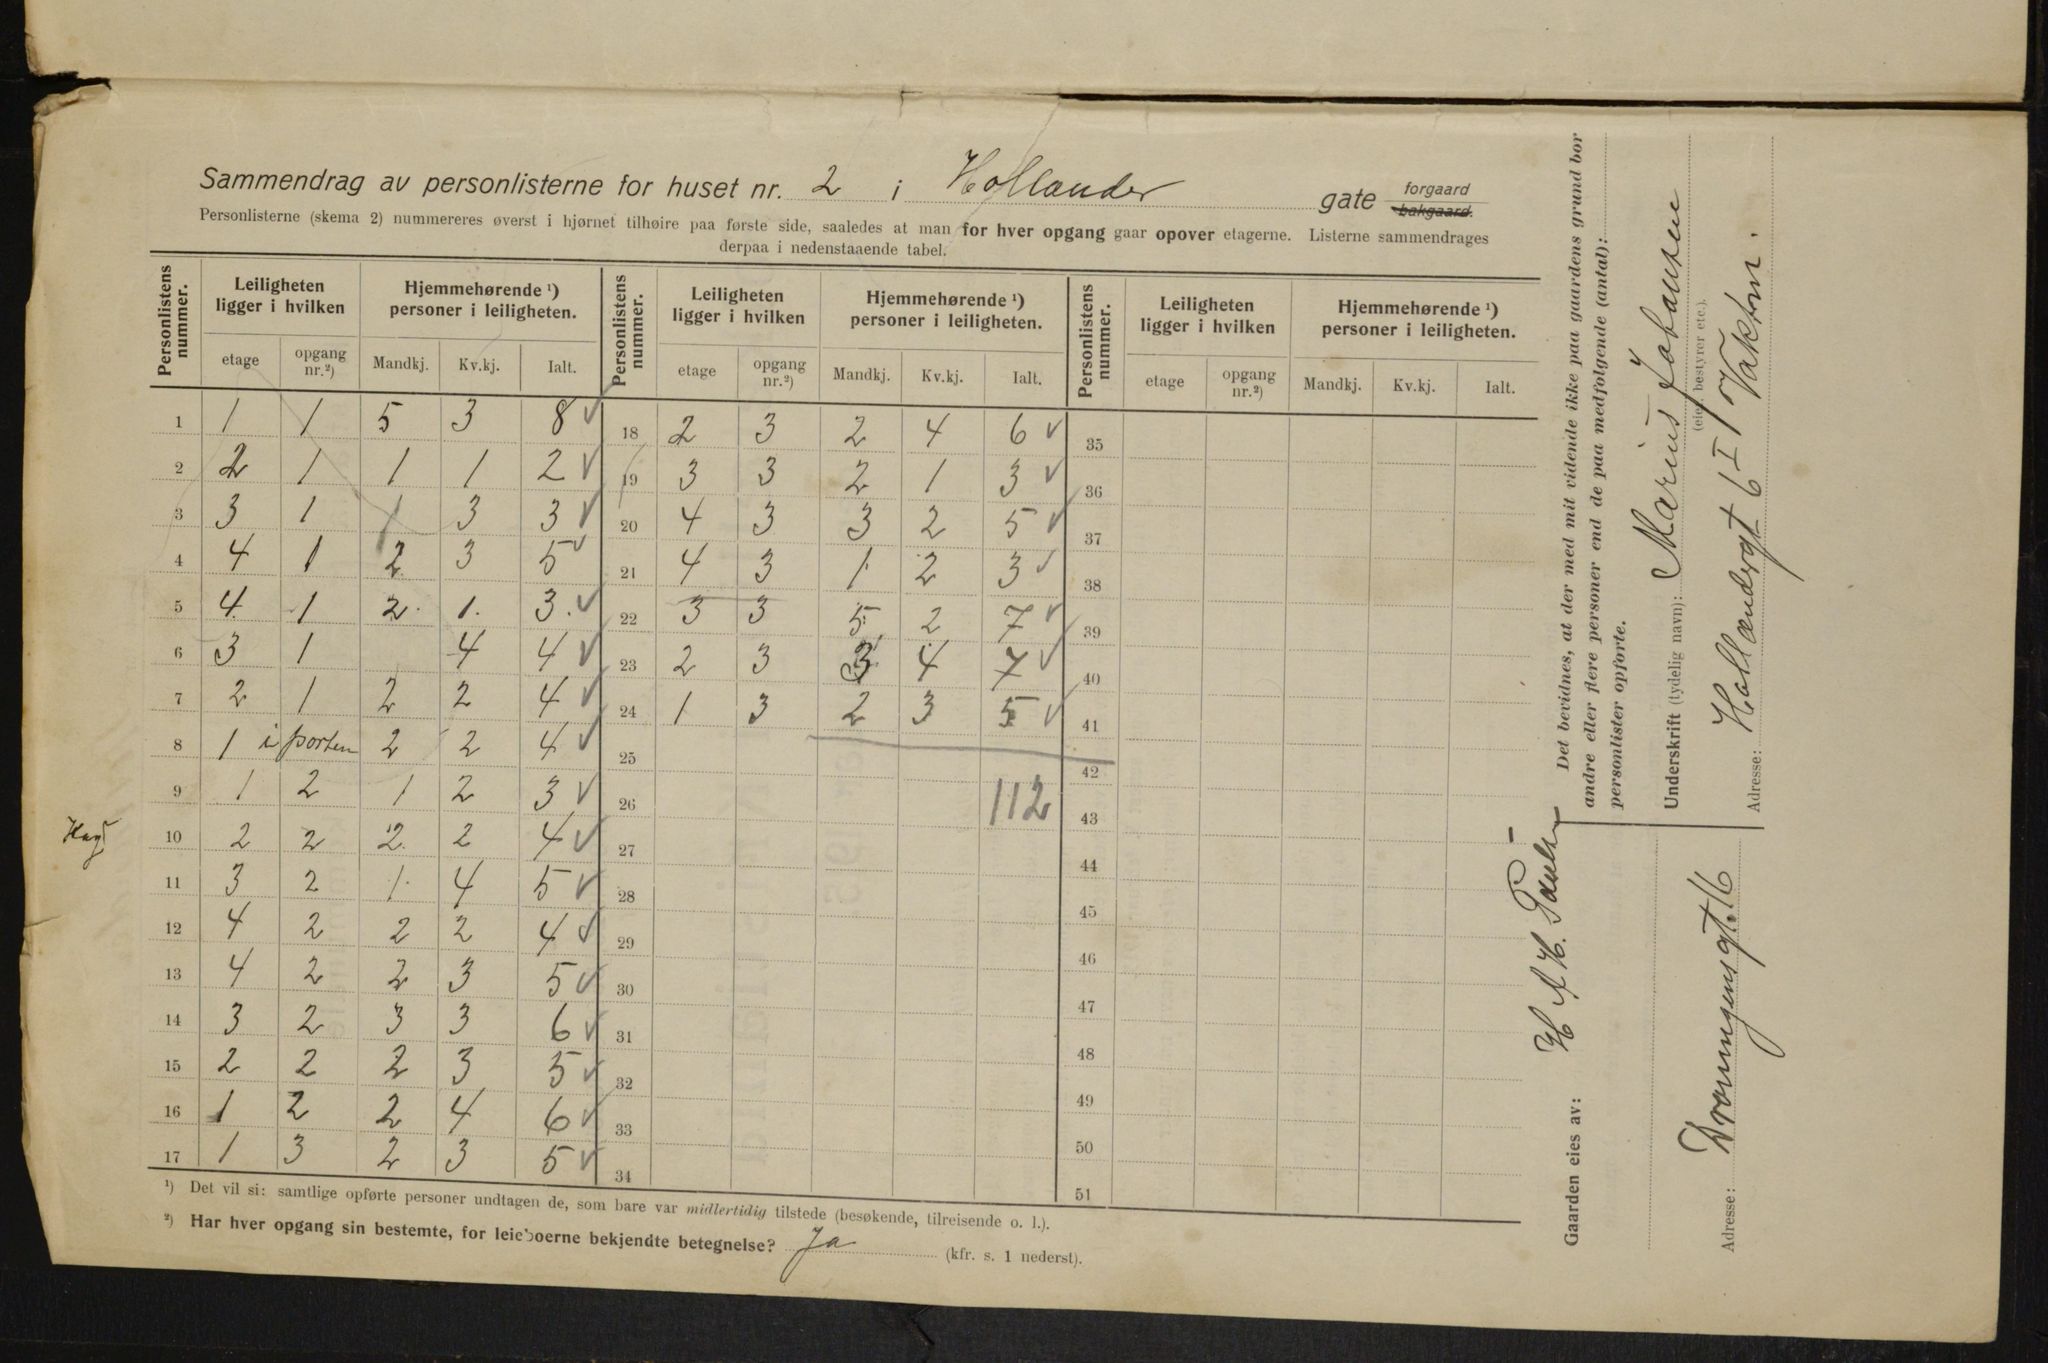 Sammendrag av personlisterne for huset nr. 2 i Hollænder gate forgaard bakgaard.
Personlisterne (skema 2) nummereres øverst i hjørnet tilhøire paa første side, saaledes at man for hver opgang gaar opover etagerne. Listerne sammendrages
derpaa i nedenstaaende tabel.
Personlistens nummer. Leiligheten ligger i hvilken Hjemmehørende ¹) personer i leiligheten. Personlistens nummer. Leiligheten ligger i hvilken Hjemmehørende ¹) personer i leiligheten. Personlistens nummer. Leiligheten ligger i hvilken Hjemmehørende ¹) personer i leiligheten.
etage opgang nr.²) Mandkj. Kv.kj. Ialt. etage opgang nr.²) Mandkj. Kv.kj. Ialt. etage opgang nr.²) Mandkj. Kv.kj. Ialt.
1 1 1 5 3 8 ✓ 18 2 3 2 4 6 ✓ 35
2 2 1 1 1 2 ✓ 19 3 3 2 1 3 ✓ 36
3 3 1 1 3 3 ✓ 20 4 3 3 2 5 ✓ 37
4 4 1 2 3 5 ✓ 21 4 3 1 2 3 ✓ 38
5 4 1 2 1 3 ✓ 22 3 3 5 2 7 ✓ 39
6 3 1 4 4 ✓ 23 2 3 3 4 7 ✓ 40
7 2 1 2 2 4 ✓ 24 1 3 2 3 5 ✓ 41
8 1 i porten 2 2 4 ✓ 25 42
9 1 2 1 2 3 ✓ 26 112 43
10 2 2 2 2 4 ✓ 27 44
11 3 2 1 4 5 ✓ 28 45
12 4 2 2 2 4 ✓ 29 46
13 4 2 2 3 5 ✓ 30 47
14 3 2 3 3 6 ✓ 31 48
15 2 2 2 3 5 ✓ 32 49
16 1 2 2 4 6 ✓ 33 50
17 1 3 2 3 5 ✓ 34 51
¹) Det vil si: samtlige opførte personer undtagen de, som bare var midlertidig tilstede (besøkende, tilreisende o. l.).
²) Har hver opgang sin bestemte, for leieboerne bekjendte betegnelse? Ja (kfr. s. 1 nederst).
Det bevidnes, at der med mit vidende ikke paa gaardens grund bor
andre eller flere personer end de paa medfølgende (antal):
personlister opførte.
Underskrift (tydelig navn): Marius Johansen
(eier, bestyrer etc.).
Adresse: Hollændergt 6 I Vaktm.
Gaarden eies av: H A H. Paulsen
Adresse: Dronningensgt. 16